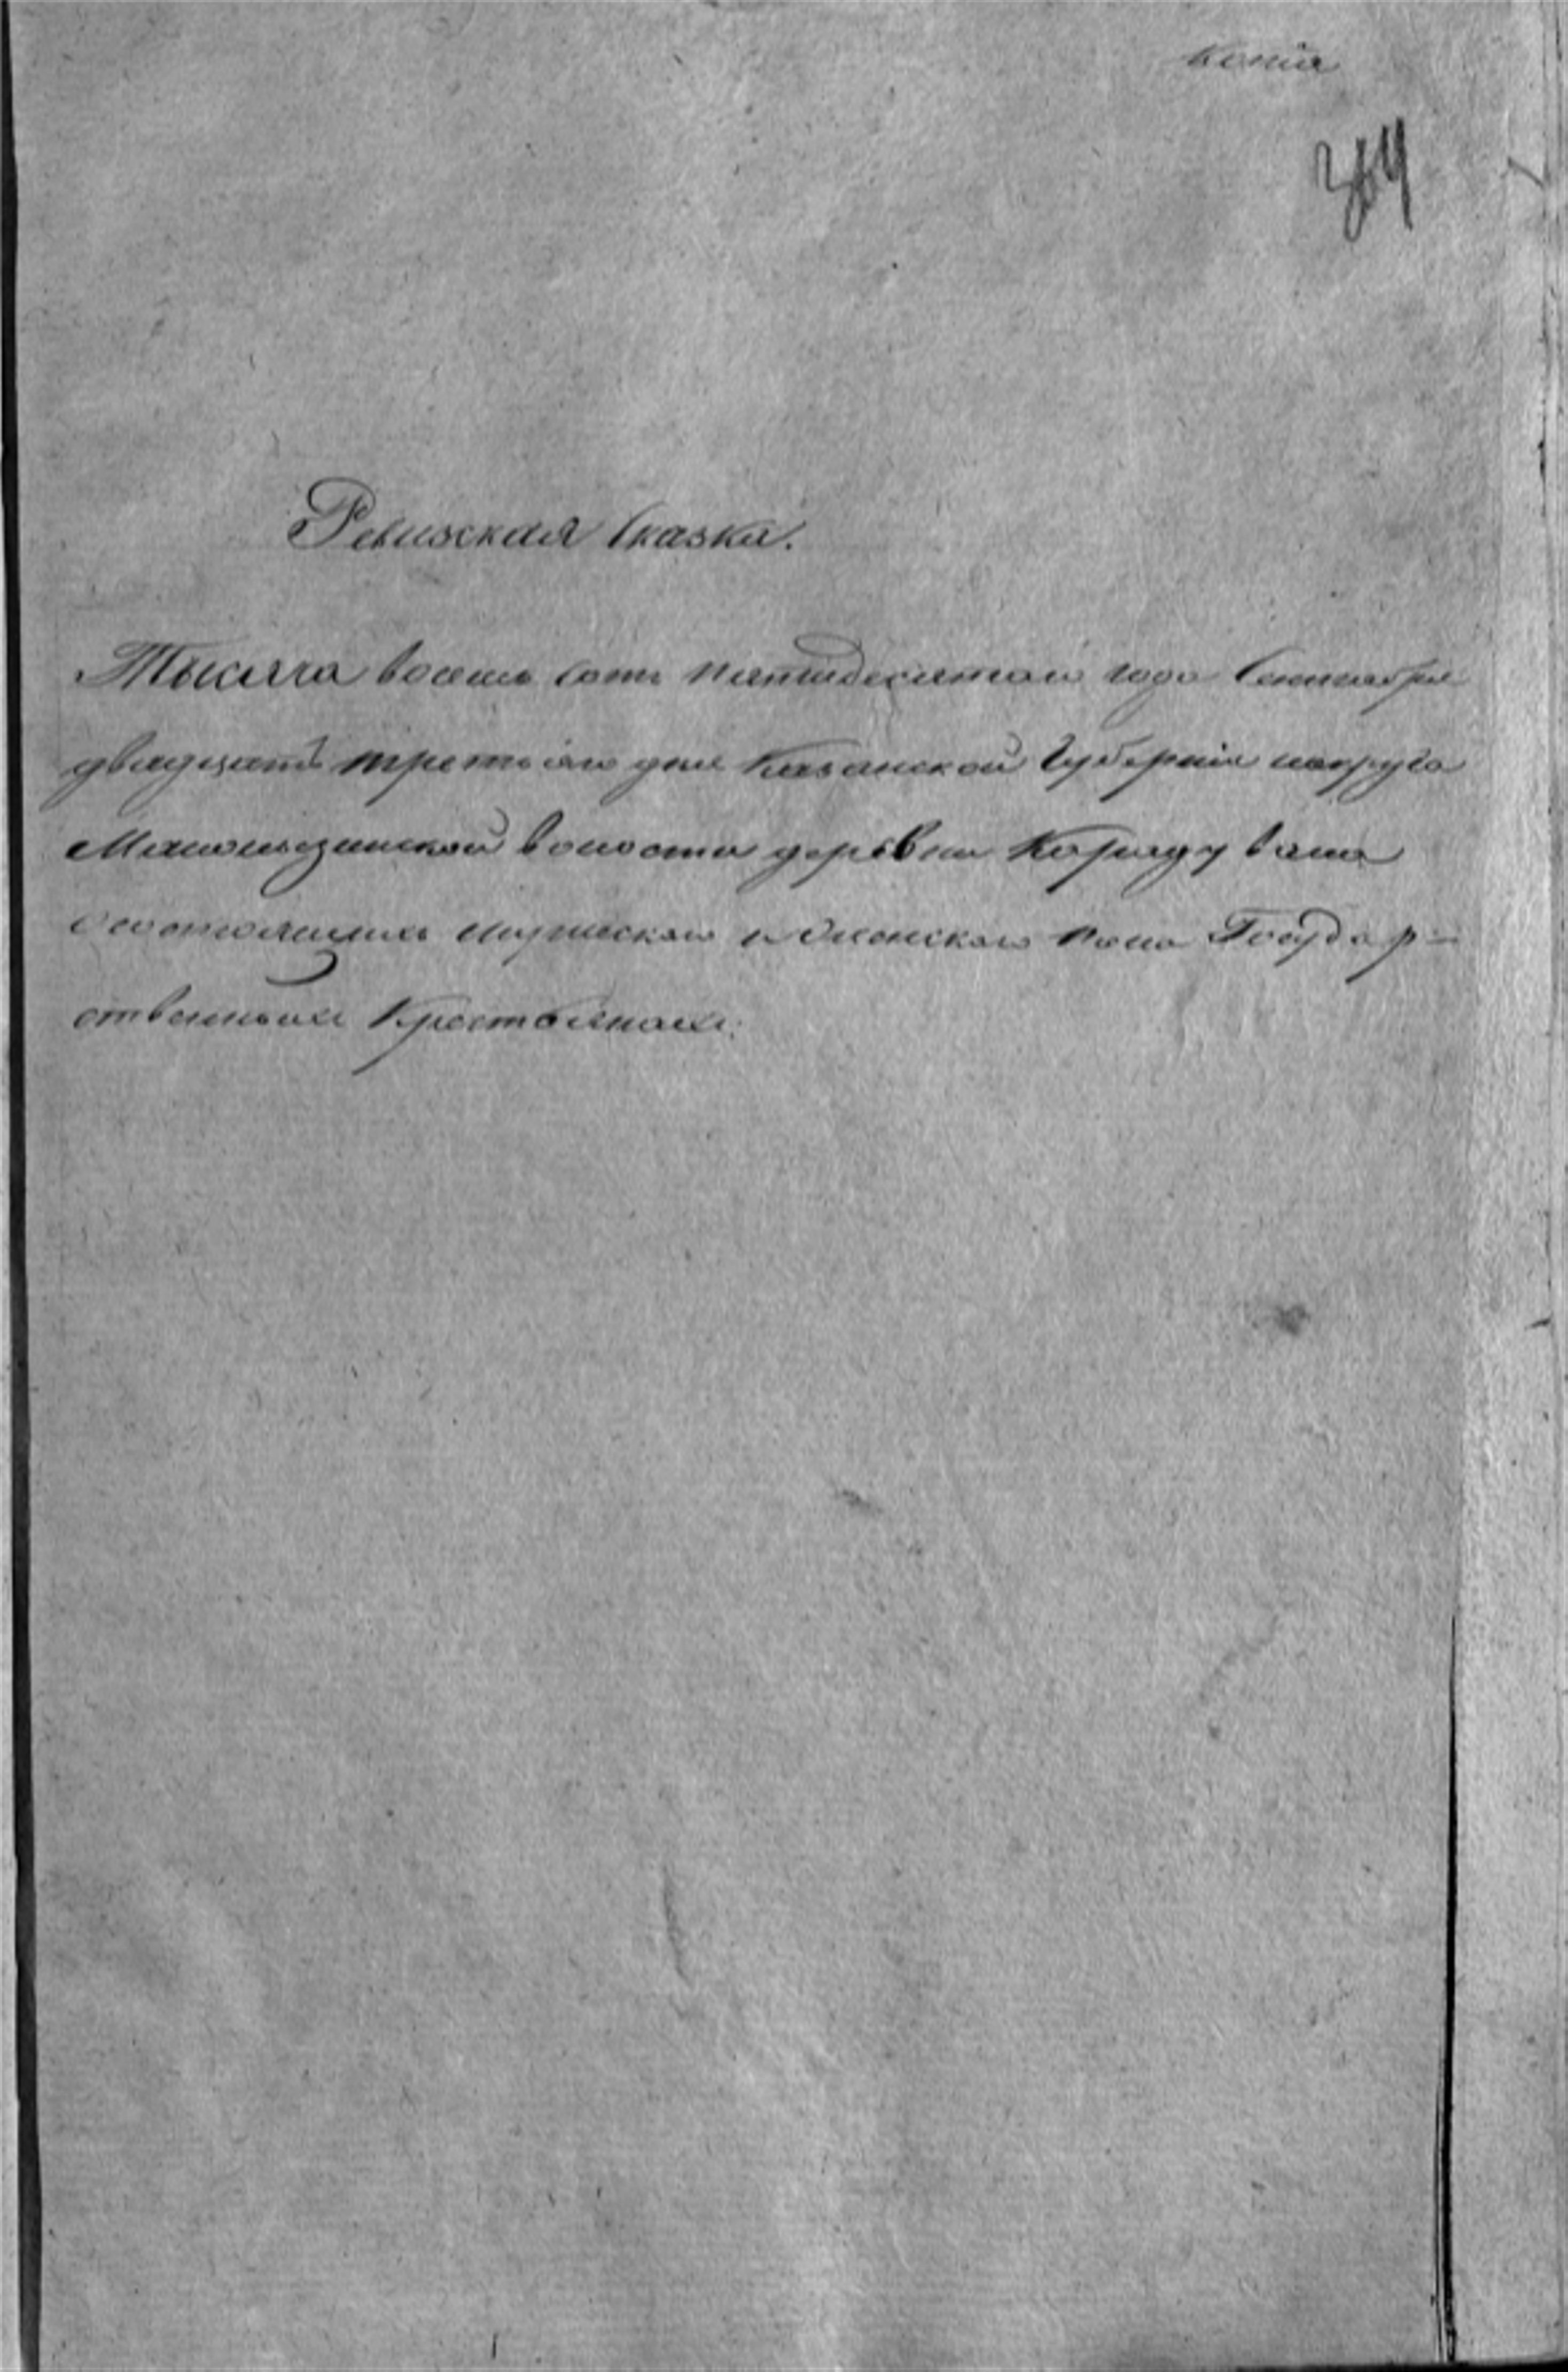 копія
364
Ревизская Сказка.
Тысяча восемь сотъ пятидесятаго года Сентября
двадцать третьяго дня Казанской Губерніи и округа
волости деревни
О состоящихъ мужеска и женска пола Государ-
ственныхъ Крестьянахъ.